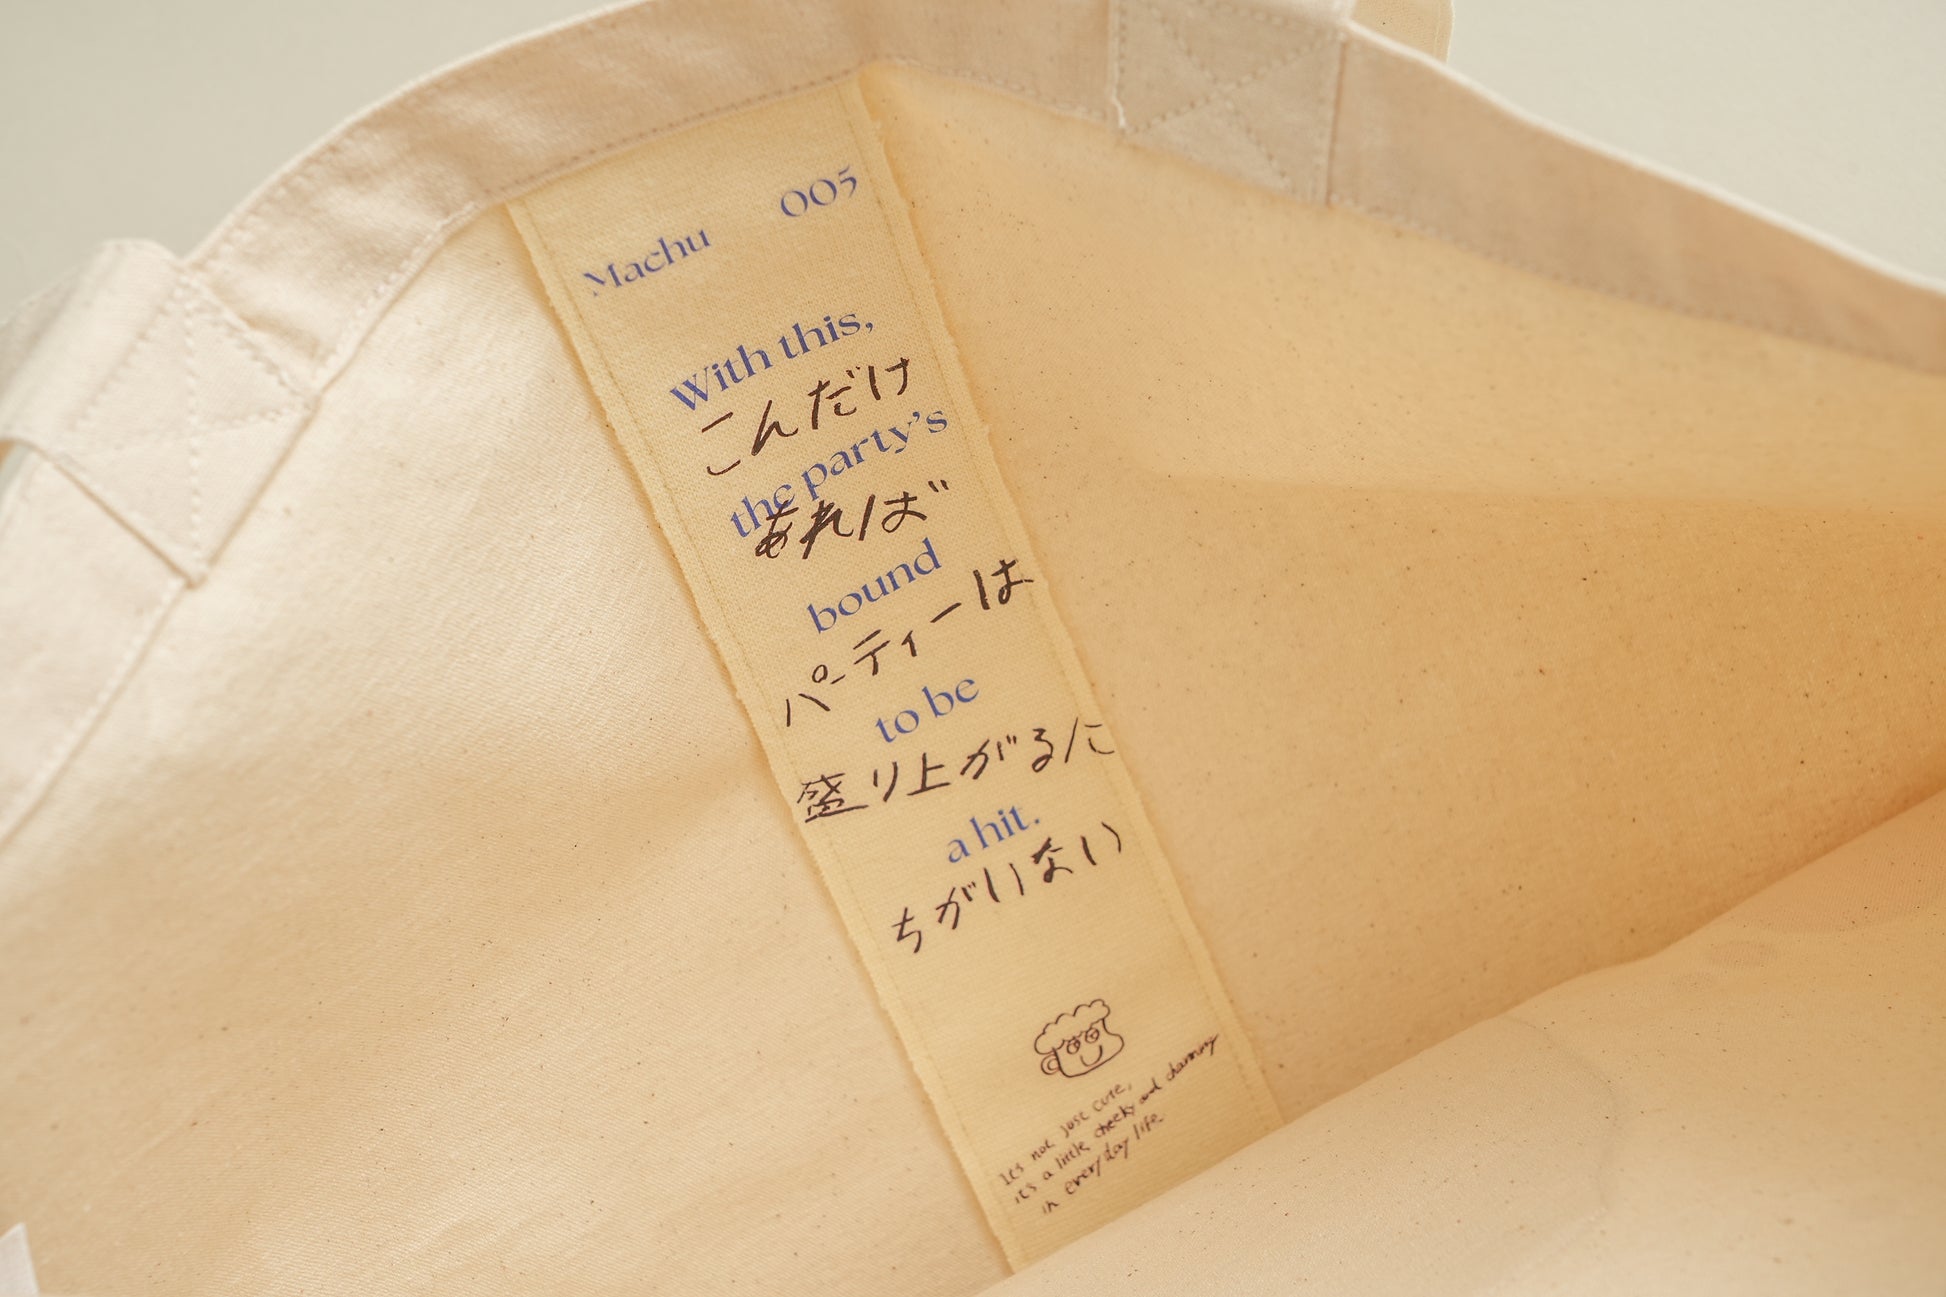 Machu 005
With this,
こんだけ
the party's
あれば
bound
パーティーは
to be
盛り上がるに
a hit.
ちがいない
It's not just cute,
it's a little cheeky and charming
in everyday life.